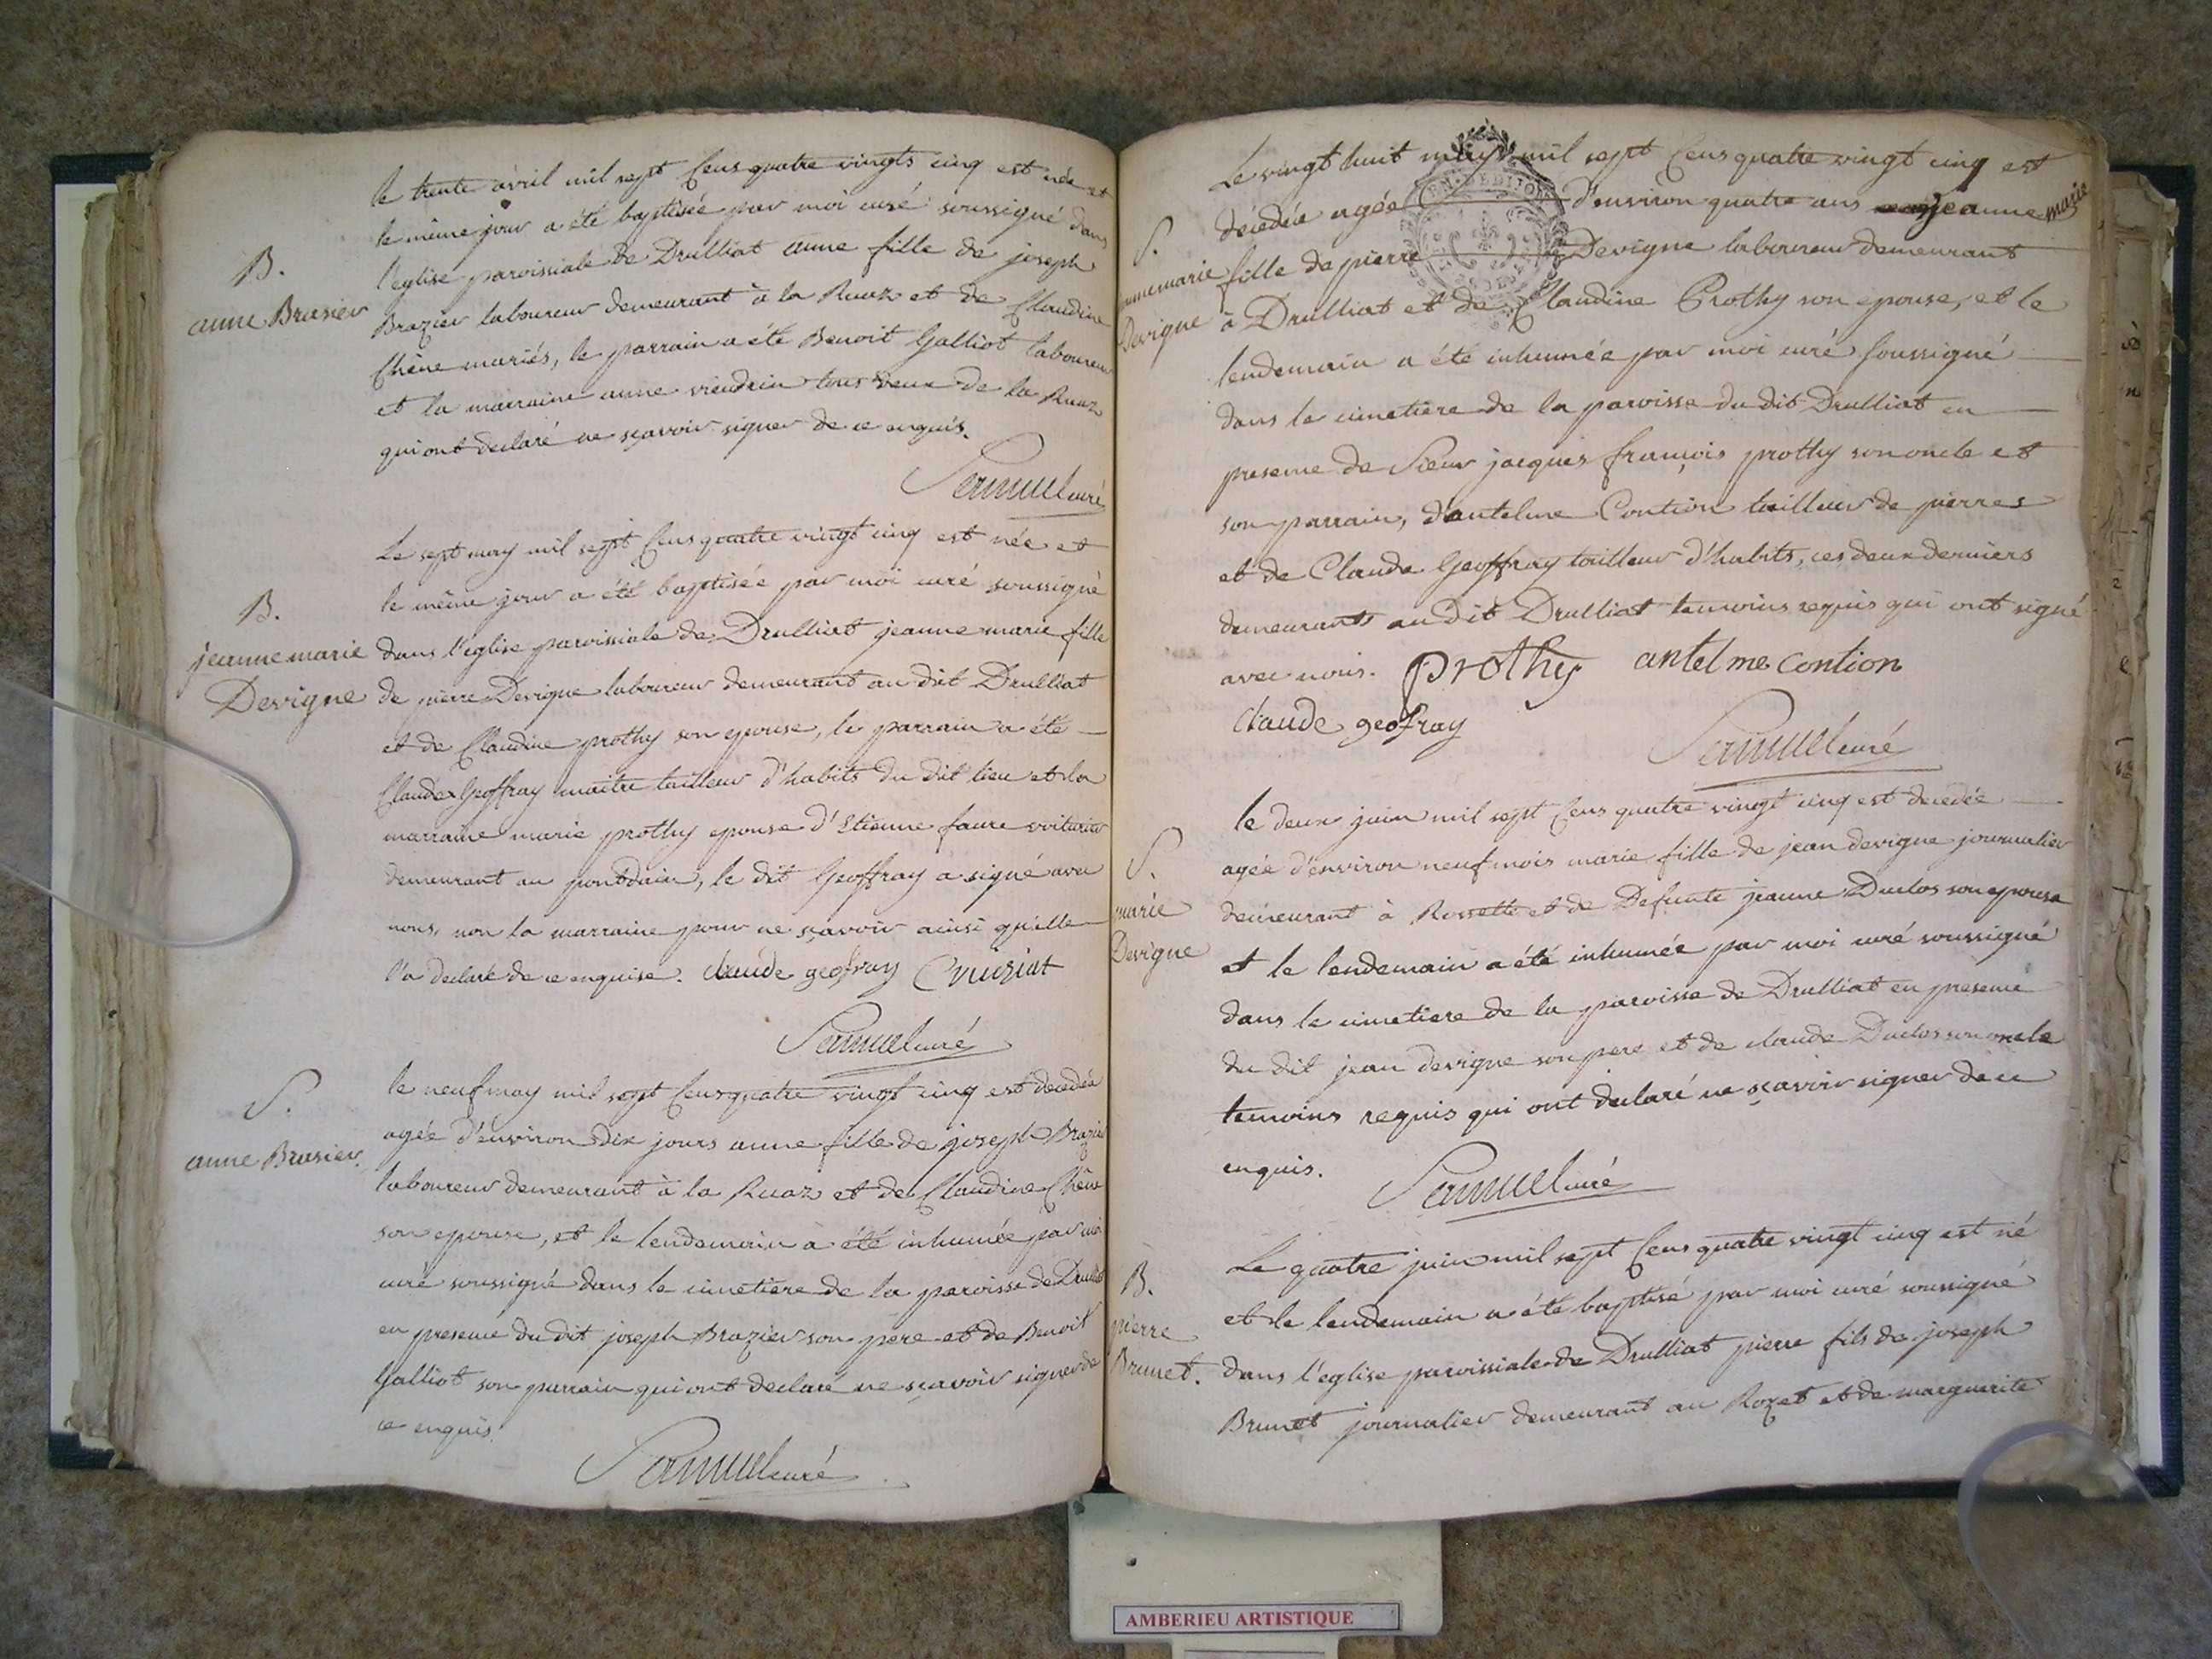 B.
anne Brasier
le trente avril mil sept Cens quatre vingts cinq est née et
le même jour a été baptisée par moi curé soussigné dans
l'eglise paroissiale de Drulliat anne fille de joseph
Brazier laboureur demeurant à la Ruaz et de Claudine
Chêne mariés, le parrain a été Benoit Galliot laboureur
et la marraine anne vieudrin tous deux de la Ruaz
qui ont declaré ne sçavoir signer de ce enquis.
Samuel curé
B.
jeanne marie
Devigne
Le sept may mil sept Cens quatre vingt cinq est née et
le même jour a été baptisée par moi curé soussigné
dans l'eglise paroissiale de Drulliat jeanne marie fille
de pierre Devigne laboureur demeurant au dit Drulliat
et de Claudine prothy son epouse, le parrain a été
Claude Geoffray maitre tailleur d'habits du dit lieu et la
marraine marie prothy epouse d'Etienne faure voiturier
demeurant au pontdain, le dit Geoffray a signé avec
nous, non la marraine pour ne sçavoir ainsi qu'elle
l'a declaré de ce enquise. claude geofray Cruiziat
Samuel curé
S.
anne Brasier.
le neuf may mil sept Cens quatre vingt cinq est decedée
agée d'environ dix jours anne fille de joseph Brazier
laboureur demeurant à la Ruaz et de Claudine Chêne
son epouse, et le lendemain a été inhumée par moi
curé soussigné dans le cimetiere de la paroisse de Drulliat
en presence du dit joseph Brazier son pere et de Benoit
Galliot son parrain qui ont declaré ne sçavoir signer de
ce enquis.
Samuel curé
S.
jeanne marie
Devigne
Le vingt huit may mil sept Cens quatre vingt cinq est
décedée agée d'environ quatre ans jeanne marie
fille de pierre Devigne laboureur demeurant
à Drulliat et de Claudine Prothy son epouse, et le
lendemain a été inhumée par moi curé soussigné
dans le cimetiere de la paroisse du dit Drulliat en
presence de Sieur jacques françois prothy son oncle et
son parrain, d'antelme Contion tailleur de pierres
et de Claude Geoffray tailleur d'habits, ces deux derniers
demeurants au dit Drulliat temoins requis qui ont signé
avec nous. prothy antelme contion
claude geofray
Samuel curé
S.
marie
Devigne
le deux juin mil sept Cens quatre vingt cinq est decedée
agée d'environ neuf mois marie fille de jean devigne journalier
demeurant à Rossette et de Defunte jeanne Duclos son epouse
et le lendemain a été inhumée par moi curé soussigné
dans le cimetiere de la paroisse de Drulliat en presence
du dit jean devigne son pere et de claude Duclos son oncle
temoins requis qui ont declaré ne sçavoir signer de ce
enquis.
Samuel curé
B.
pierre
Brunet.
Le quatre juin mil sept Cens quatre vingt cinq est né
et le lendemain a été baptisé par moi curé soussigné
dans l'eglise paroissiale de Drulliat pierre fils de joseph
Brunet journalier demeurant au Rozet et de marguerite
AMBERIEU ARTISTIQUE